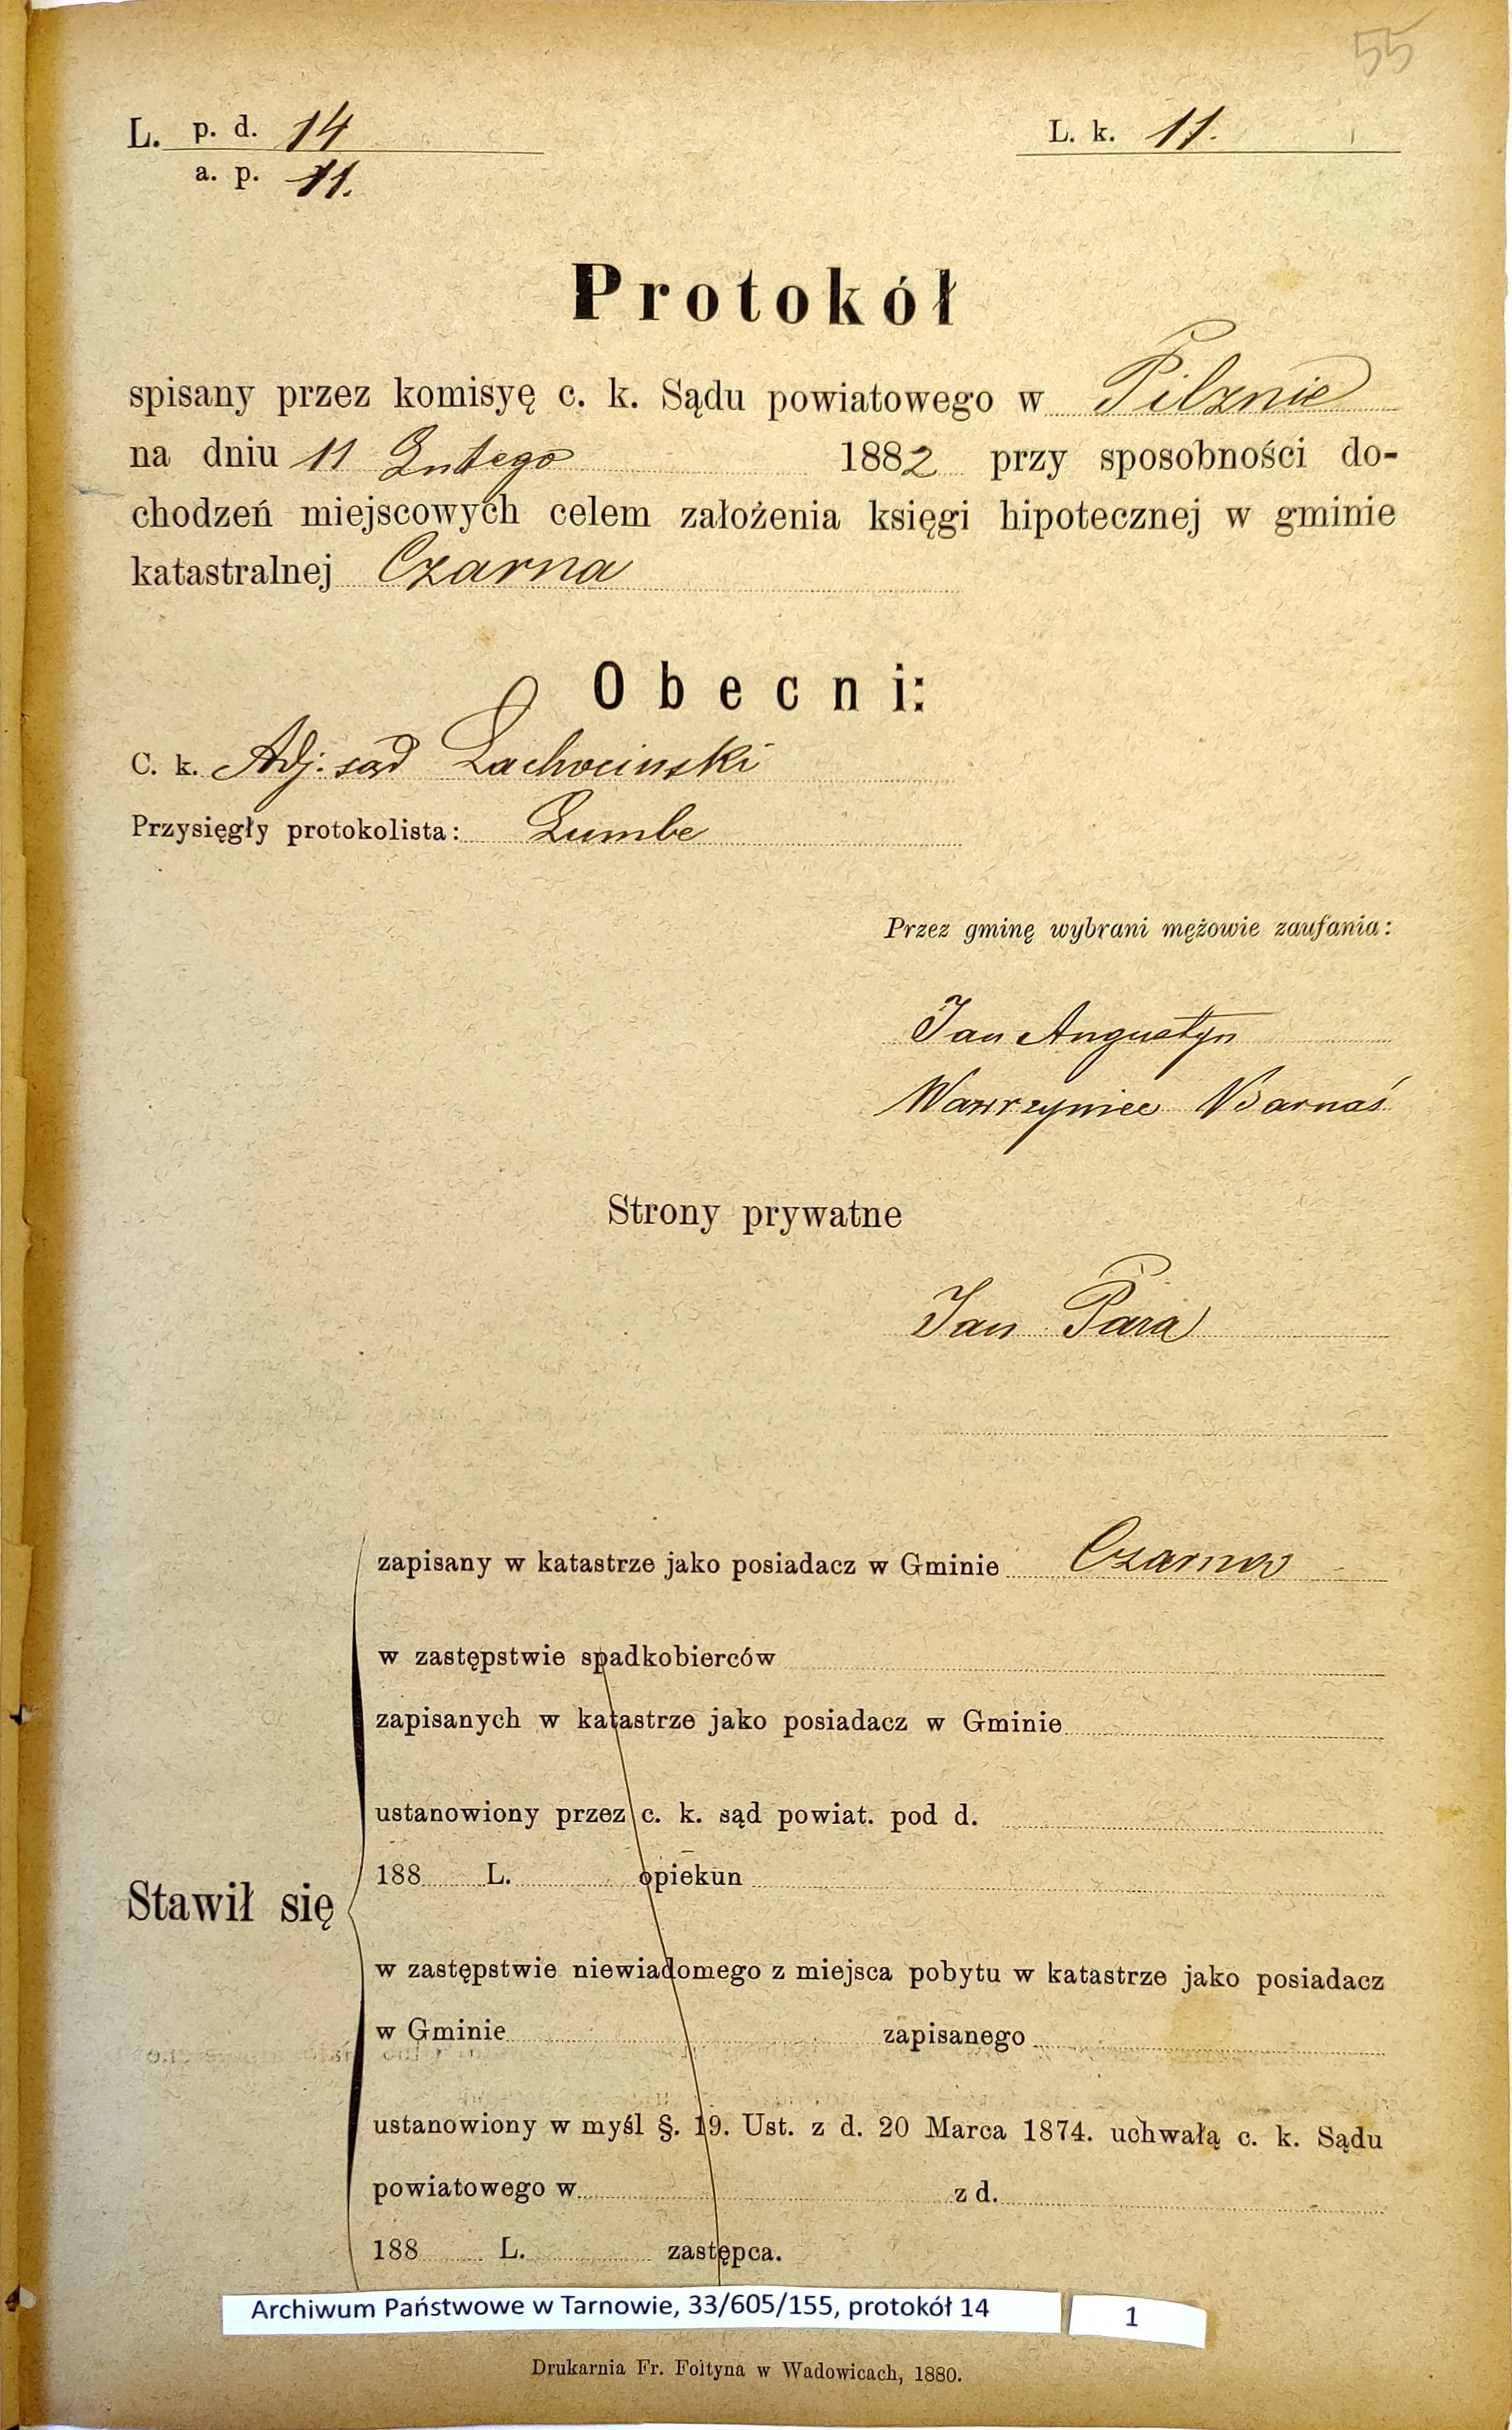 55
L. p. d. 14
a. p. 11.
L. k. 11.
Protokół
spisany przez komisyę c. k. Sądu powiatowego w Pilznie
na dniu 11 Lutego 1882 przy sposobności do-
chodzeń miejscowych celem założenia księgi hipotecznej w gminie
katastralnej Czarna
Obecni:
C. k. Adj. sąd Lachocinski
Przysięgły protokolista: Lumbe
Przez gminę wybrani mężowie zaufania:
Jan Augustyn
Wawrzyniec Barnaś
Strony prywatne
Jan Para
zapisany w katastrze jako posiadacz w Gminie Czarna
w zastępstwie spadkobierców
zapisanych w katastrze jako posiadacz w Gminie
ustanowiony przez c. k. sąd powiat. pod d.
188 L. opiekun
Stawił się
w zastępstwie niewiadomego z miejsca pobytu w katastrze jako posiadacz
w Gminie zapisanego
ustanowiony w myśl §. 19. Ust. z d. 20 Marca 1874. uchwałą c. k. Sądu
powiatowego w z d.
188 L. zastępca.
Archiwum Państwowe w Tarnowie, 33/605/155, protokół 14 1
Drukarnia Fr. Foltyna w Wadowicach, 1880.